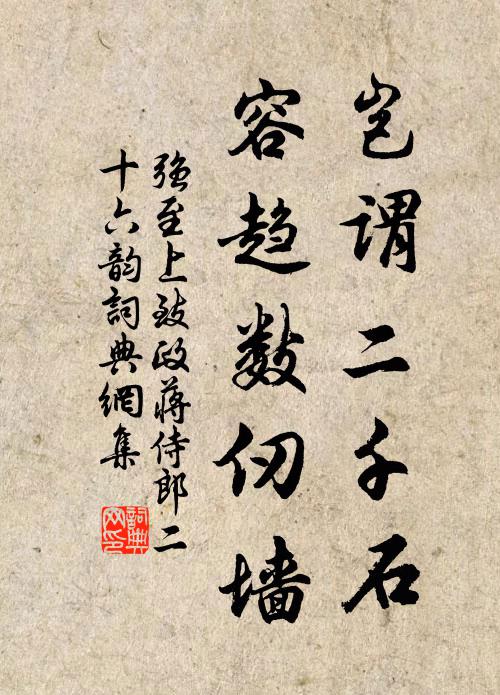 岂谓二千石
容趋数仞墙
强至上致政蒋侍郎二
十六韵詞典網集
詞典网印